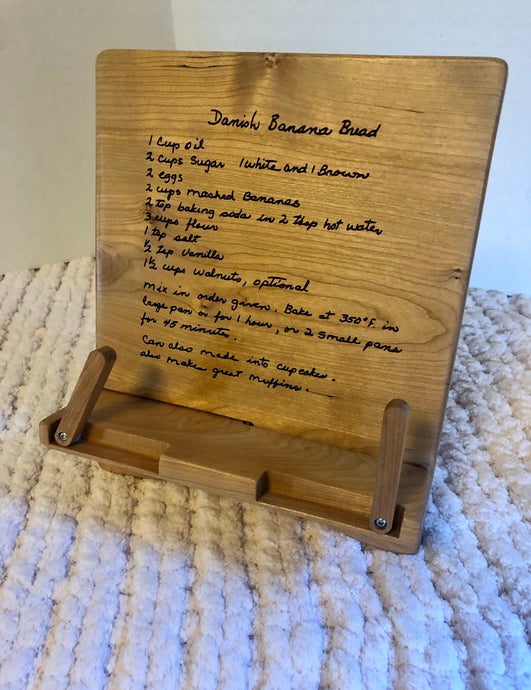 Danish Banana Bread
1 Cup oil
2 Cups Sugar 1 White and 1 Brown
2 eggs
2 cups mashed Bananas
2 tsp baking soda in 2 Tbsp hot water
3 cups flour
1 tsp salt
1/2 tsp Vanilla
1 1/2 cups Walnuts, optional
Mix in order given. Bake at 350°F. in
large pan or for 1 hour, or 2 small pans
for 45 minutes.
Can also made into cupcakes.
also makes great muffins.